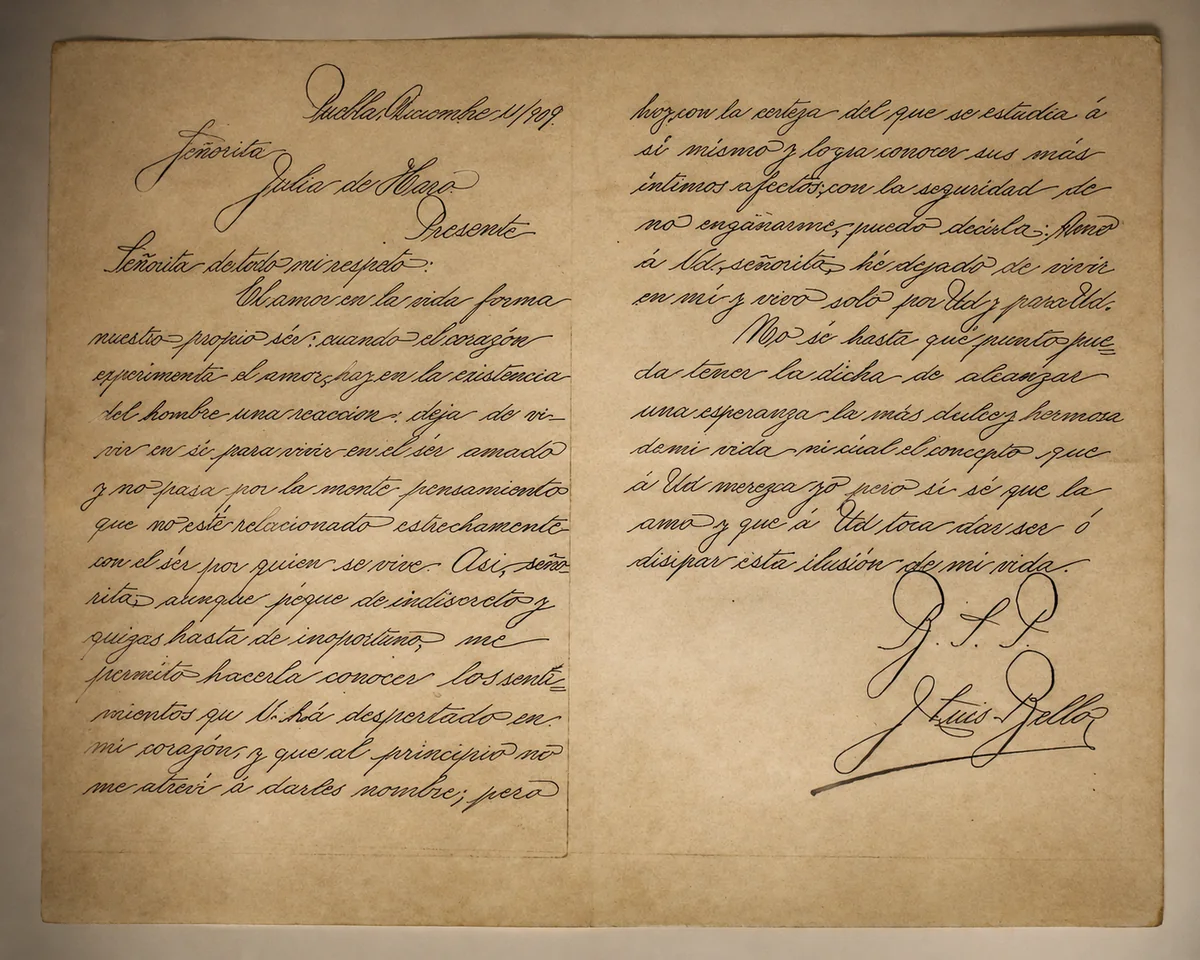 Puebla, Diciembre 11/909.
Señorita
Julia de Haro
Presente
Señorita de todo mi respeto:
El amor en la vida forma
nuestro propio sér: cuando el corazón
experimenta el amor, hay en la existencia
del hombre una reaccion: deja de vi-
vir en sí para vivir en el sér amado
y no pasa por la mente pensamiento
que no esté relacionado estrechamente
con el sér por quien se vive. Asi, seño-
rita, aunque peque de indiscreto y
quizas hasta de inoportuno, me
permito hacerla conocer los senti=
mientos qu V. há despertado en
mi corazón, y que al principio no
me atreví á darles nombre; pero
hoy, con la certeza del que se estudia á
sí mismo y logra conocer sus más
íntimos afectos; con la seguridad de
no engañarme, puedo decirla: Amo
á Ud, señorita, hé dejado de vivir
en mí y vivo solo por Ud y para Ud.
No sé hasta qué punto pue=
da tener la dicha de alcanzar
una esperanza la más dulce y hermosa
de mi vida ni cúal el concepto que
á Ud merezca yo pero sí sé que la
amo y que á Ud toca dar ser ó
disipar esta ilusión de mi vida.
B. S. P.
J Luis Bello